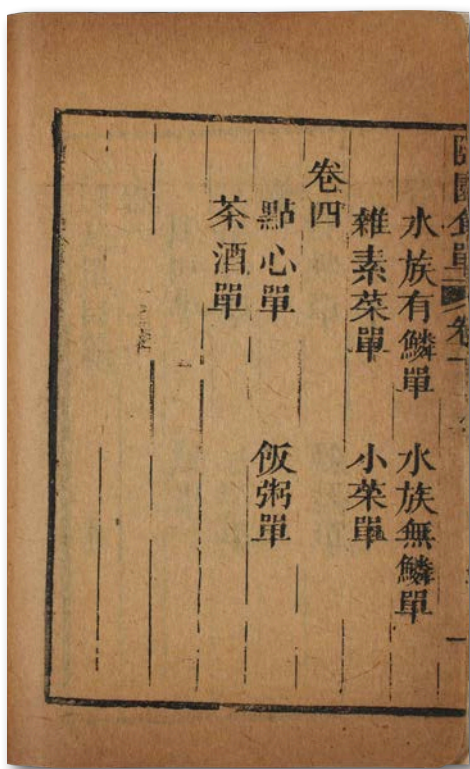 隨園食單 卷
水族有鱗單 水族無鱗單
雜素菜單 小菜單
卷四
點心單 飯粥單
茶酒單